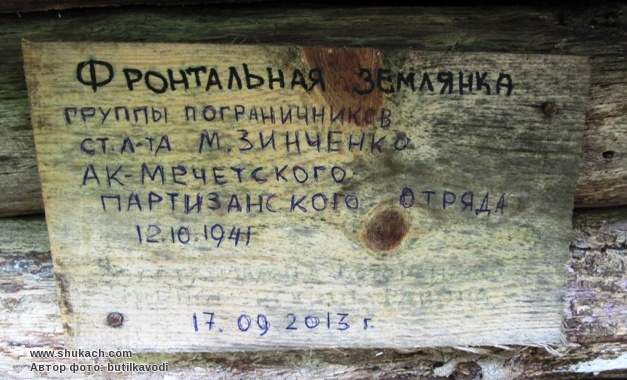 ФРОНТАЛЬНАЯ ЗЕМЛЯНКА
ГРУППЫ ПОГРАНИЧНИКОВ
СТ. Л-ТА М. ЗИНЧЕНКО
АК-МЕЧЕТСКОГО
ПАРТИЗАНСКОГО ОТРЯДА
12.10.1941
17. 09 2013 г.
www.shukach.com
Автор фото: butilkavodi